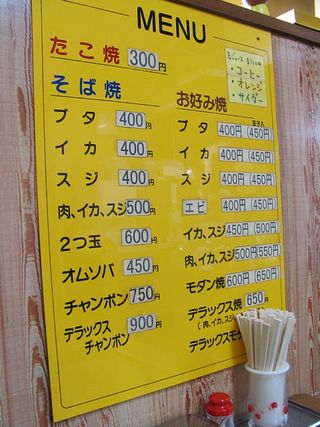 MENU
たこ焼 300円
そば焼
ブタ 400円
イカ 400円
スジ 400円
肉、イカ、スジ 500円
2つ玉 600円
オムソバ 450円
チャンポン 750円
デラックス
チャンポン 900円
・コーヒー
・オレンジ
・サイダー
お好み焼
玉子入
ブタ 400円(450円)
イカ 400円(450円)
スジ 400円(450円)
エビ 400円(450円)
イカ、スジ 450円(500円)
肉、イカ、スジ 500円(550円)
モダン焼 600円(650円)
デラックス焼 650円
(肉、イカ、スジ
デラックスモダ